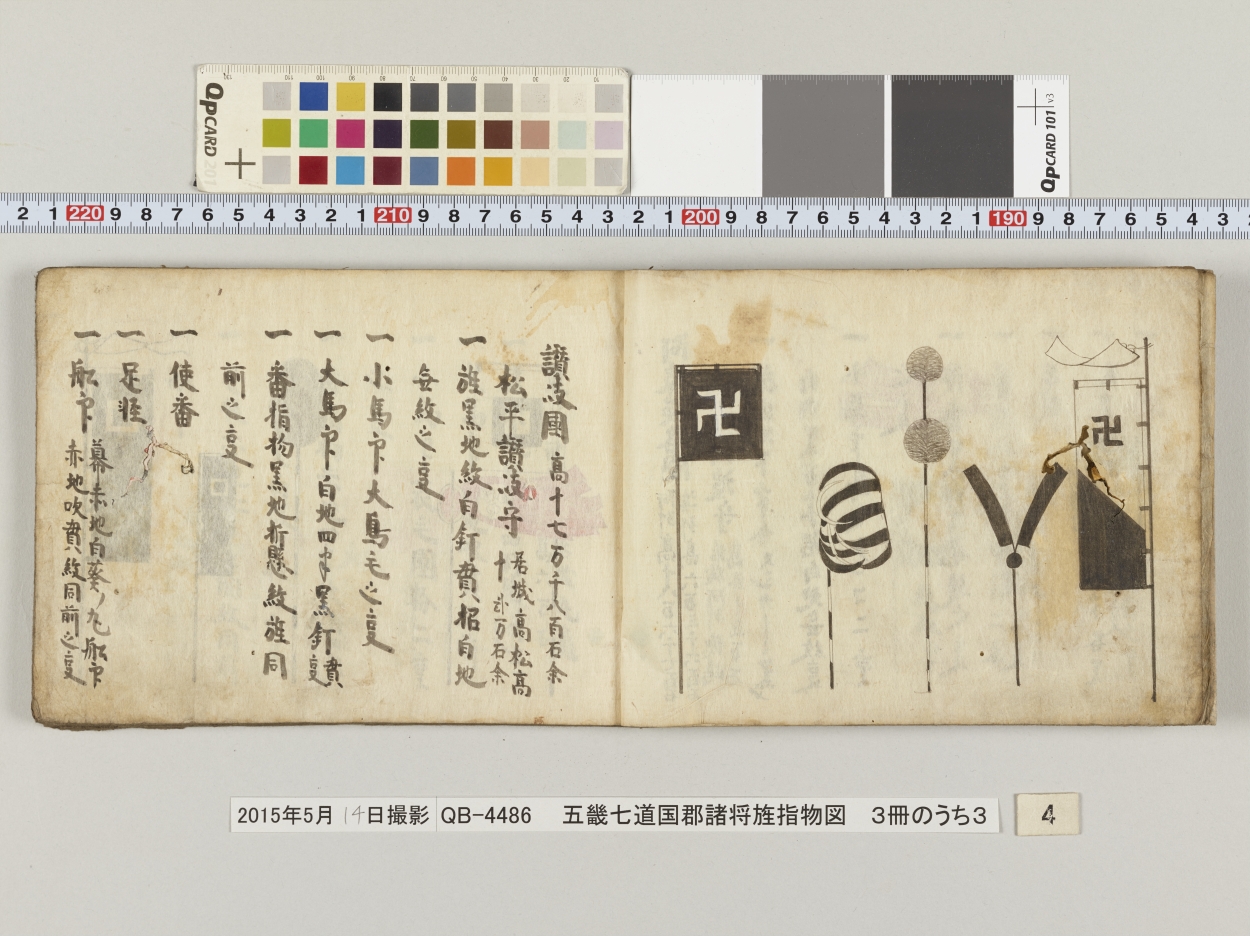 QPCARD 201
QPCARD 101 v3
2 1 220 9 8 7 6 5 4 3 2 1 210 9 8 7 6 5 4 3 2 1 200 9 8 7 6 5 4 3 2 1 190 9 8 7 6 5 4 3
卍
卍
讃岐國 高十七万千八百石余
松平讃岐守 居城高松高
十弐万石余
一 旌黒地紋白釘貫招白地
無紋之事
一 小馬印大鳥毛之事
一 大馬印白地四半黒釘貫事
一 番指物黒地折懸紋旌同
前之事
一 使番
一 足軽
一 舩印 幕赤地白葵ノ丸舩印
赤地吹貫紋同前之事
2015年5月14日撮影 QB-4486 五畿七道国郡諸将旌指物図 3冊のうち3
4